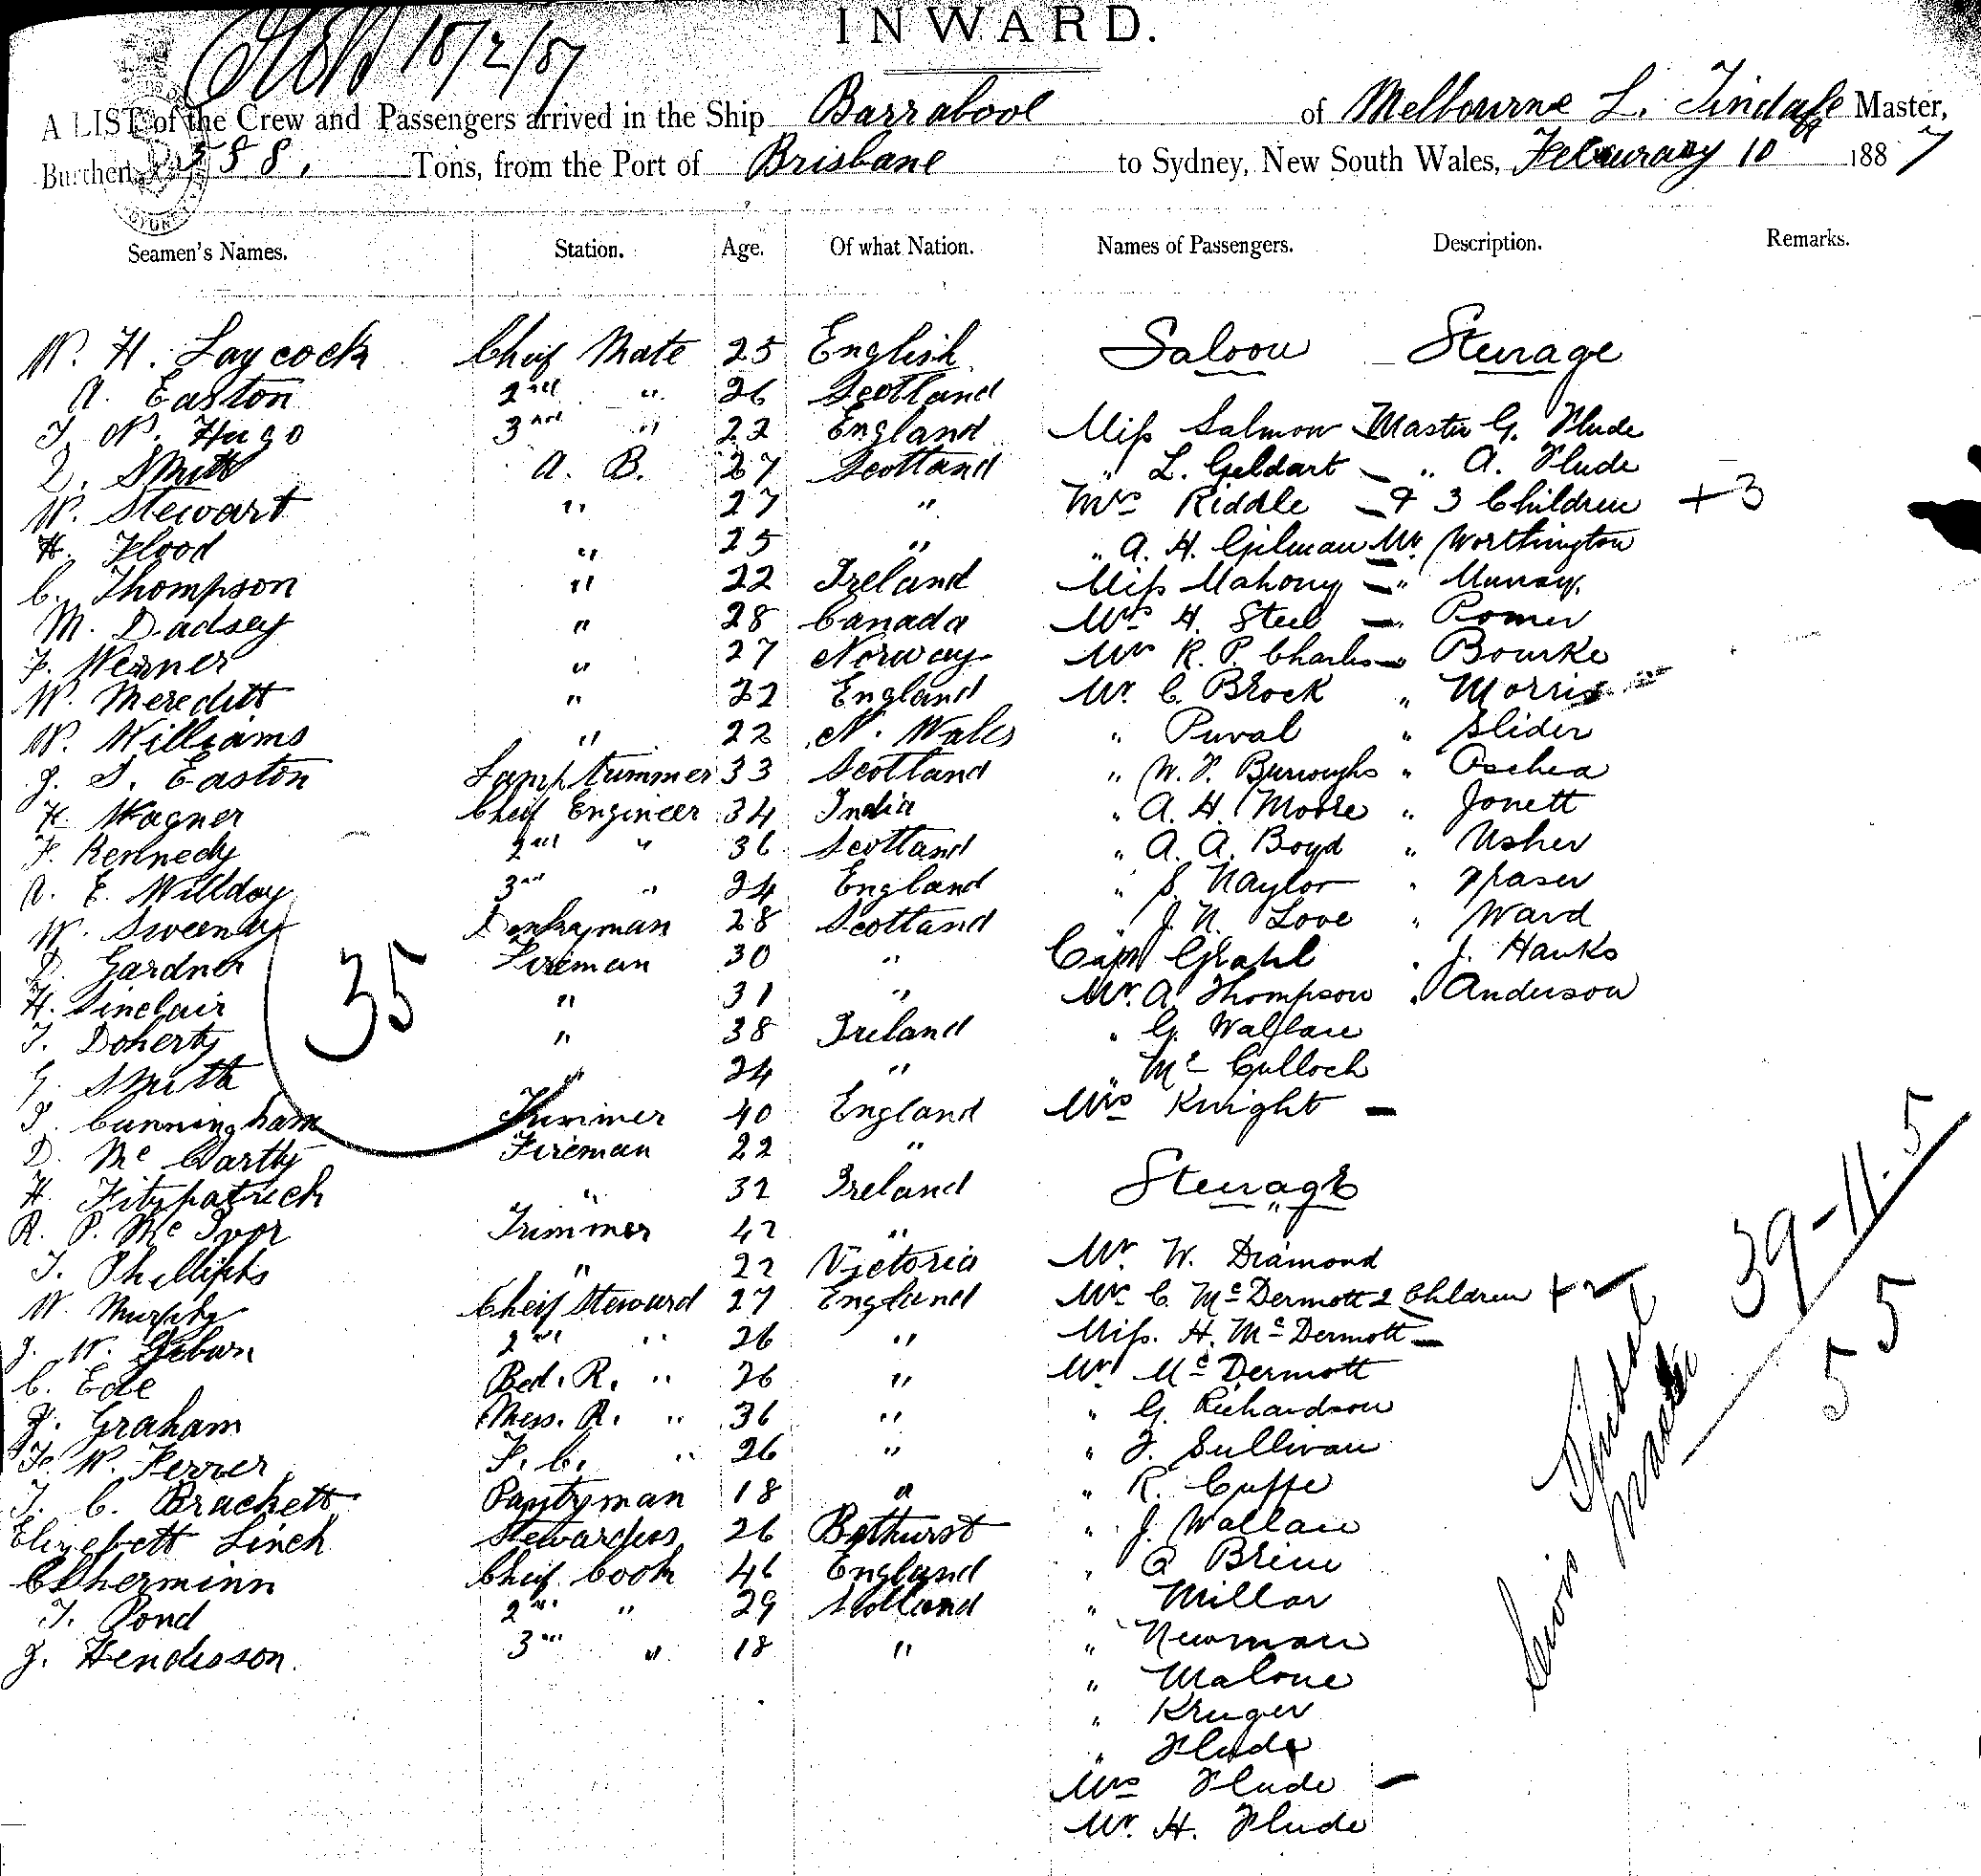 INWARD.
18/2/87
A LIST of the Crew and Passengers arrived in the Ship Barrabool of Melbourne L. Tindale Master,
Burthen 558, Tons, from the Port of Brisbane to Sydney, New South Wales, February 10 1887
Seamen's Names. Station. Age. Of what Nation. Names of Passengers. Description. Remarks.
W. H. Laycock Cheif Mate 25 English Saloon Sterage
A. Easton 2nd " 26 Scotland
T. W. Hugo 3rd " 22 England Miss Salmon Master G. Flude
Smith A. B. 27 Scotland " L. Geldart " A. Flude
W. Stewart " 27 " Mrs Riddle & 3 Children + 3
H. Flood " 25 " " A. H. Gilman Mr Worthington
C. Thompson " 22 Ireland Miss Mahony " Murray
M. Dadsey " 28 Canada Mrs H. Steel " Romer
F. Werner " 27 Norway Mrs R. P. Charles " Bourke
W. Mereditt " 22 England Mr. C. Brock " Morris
W. Williams " 22 N. Wales " Purval " Slider
J. S. Easton Lamp trimmer 33 Scotland " W. F. Burroughs "
H. Wagner Cheif Engineer 34 India " A. H. Moore " Jonett
F. Kennedy 2nd " 36 Scotland " A. A. Boyd " Usher
A. E. Willday 3rd " 24 England " S. Naylor " Fraser
W. Sweeney Donkeyman 28 Scotland " J. N. Love " Ward
D. Gardner Fireman 30 " Capn Grahl " J. Hanks
H. Sinclair " 31 " Mr. A. Thompson " Anderson
T. Doherty " 38 Ireland " G. Wallace
G. Smith " 24 " " Mc Culloch
35
Cunningham Trimmer 40 England Mrs Knight
D. Mc Cartty Fireman 22 "
H. Fitzpatrick " 32 Ireland Sterage
R. P. Mc Ivor Trimmer 42 "
T. Phillipps " 22 Victoria Mr. W. Diamond
W. Murphy Cheif Steward 27 England Mrs C. Mc Dermott 2 Children + 2
J. W. 2nd " 26 " Miss. H. Mc Dermott
C. Ede Bed. R. " 26 " Mr Mc Dermott
J. Graham Mess. R. " 36 " " G. Richardson
F. W. Ferrer F. C. " 26 " " J. Sullivan
T. C. Brackett Pantryman 18 " " R. Cuffe
Elizebett Linch Stewardess 26 Bathurst " J. Wallace
Cheif Cook 46 England "
T. Pond 2nd " 29 Scotland " Millar
J. Hendesson. 3rd " 18 " " Newman
" Malone
" Kruger
" Flude
Mrs Flude
Mr. H. Flude
39-11.5
55
Lewis Tindal
Master